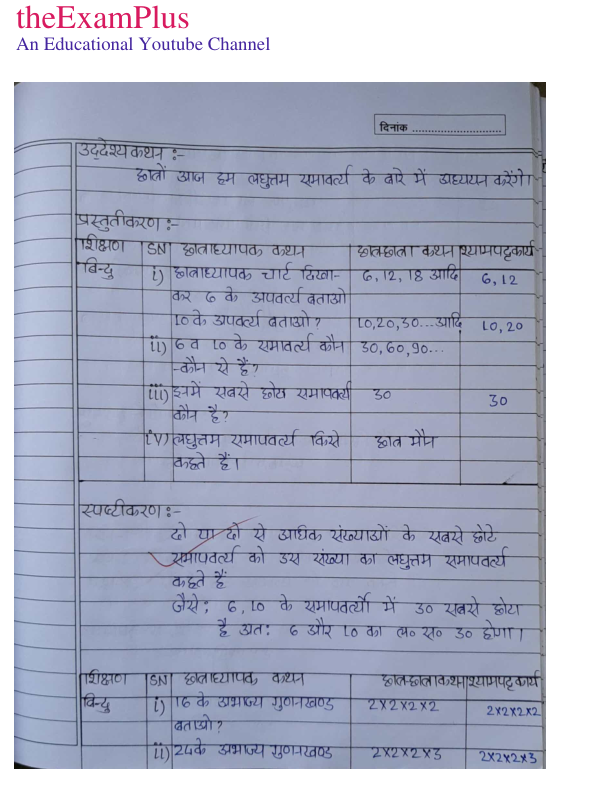 theExamPlus
An Educational Youtube Channel
दिनांक ............................
उद्देश्य कथन :-
छात्रों आज हम लघुत्तम समावर्त्य के बारे में अध्ययन करेंगे।
प्रस्तुतीकरण :-
शिक्षण SN छात्राध्यापक कथन छात्र-छात्रा कथन श्यामपट्टकार्य
बिन्दु i) छात्राध्यापक चार्ट दिखा- 6, 12, 18 आदि 6, 12
कर 6 के अपवर्त्य बताओ
10 के अपवर्त्य बताओ ? 10,20,30...आदि 10, 20
ii) 6 व 10 के समावर्त्य कौन 30,60,90...
-कौन से हैं ?
iii) इनमें सबसे छोटा समापवर्त्य 30 30
कौन है ?
iv) लघुत्तम समापवर्त्य किसे छात्र मौन
कहते हैं।
स्पष्टीकरण :-
दो या दो से अधिक संख्याओं के सबसे छोटे
समापवर्त्य को उस संख्या का लघुत्तम समापवर्त्य
कहते हैं
जैसे; 6,10 के समापवर्त्यो में 30 सबसे छोटा
है अत: 6 और 10 का ल० स० 30 होगा।
शिक्षण SN छात्राध्यापक कथन छात्र-छात्रा कथन श्यामपट्टकार्य
बिन्दु i) 16 के अभाज्य गुणनखण्ड 2×2×2×2 2×2×2×2
बताओ ?
ii) 24 के अभाज्य गुणनखण्ड 2×2×2×3 2×2×2×3